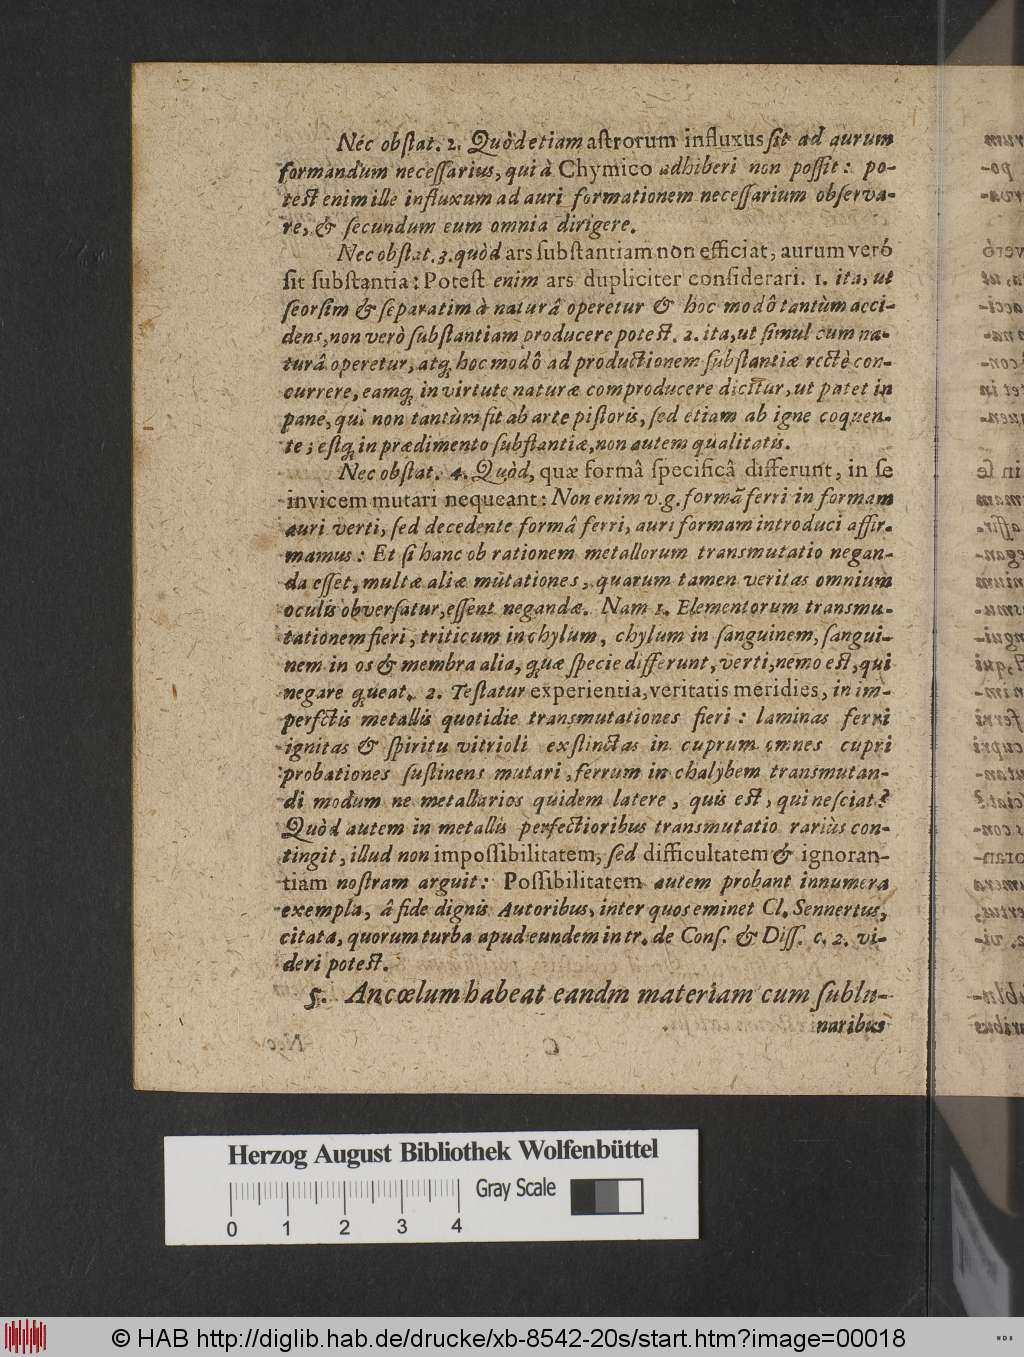 Nec obſtat. 2. Quòd etiam aſtrorum influxus ſit ad aurum
formandum neceſſarius, qui à Chymico adhiberi non poſſit: po-
teſt enim ille influxum ad auri formationem neceſſarium obſerva-
re, & ſecundum eum omnia dirigere.
Nec obſtat. 3. quòd ars ſubſtantiam non efficiat, aurum verò
ſit ſubſtantia: Poteſt enim ars dupliciter conſiderari. 1. ita, ut
ſeorſim & ſeparatim à naturâ operetur & hoc modô tantùm acci-
dens, non verò ſubſtantiam producere poteſt. 2. ita, ut ſimul cum na-
turâ operetur, atq; hoc modô ad productionem ſubſtantiæ rectè con-
currere, eamq; in virtute naturæ comproducere dicitur, ut patet in
pane, qui non tantùm fit ab arte piſtoris, ſed etiam ab igne coquen-
te; eſtq; in prædimento ſubſtantiæ, non autem qualitatis.
Nec obſtat. 4. Quòd, quæ formâ ſpecificâ differunt, in ſe
invicem mutari nequeant: Non enim v.g. formã ferri in formam
auri verti, ſed decedente formâ ferri, auri formam introduci affir-
mamus: Et ſi hanc ob rationem metallorum transmutatio negan-
da eſſet, multæ aliæ mutationes, quarum tamen veritas omnium
oculis obverſatur, eſſent negandæ. Nam 1. Elementorum transmu-
tationem fieri, triticum in chylum, chylum in ſanguinem, ſangui-
nem in os & membra alia, quæ ſpecie differunt, verti, nemo eſt, qui
negare queat. 2. Teſtatur experientia, veritatis meridies, in im-
perfctis metallis quotidie transmutationes fieri: laminas ferri
ignitas & ſpiritu vitrioli exſtinctas in cuprum omnes cupri
probationes ſuſtinens mutari, ferrum in chalybem transmutan-
di modum ne metallarios quidem latere, quis eſt, qui neſciat?
Quòd autem in metallis perfectioribus transmutatio rariùs con-
tingit, illud non impoſſibilitatem, ſed difficultatem & ignoran-
tiam noſtram arguit: Poſſibilitatem autem probant innumera
exempla, â fide dignis Autoribus, inter quos eminet Cl. Sennertus,
citata, quorum turba apud eundem in tr. de Conſ. & Diſſ. c. 2. vi-
deri poteſt.
5. An cœlum habeat eandm materiam cum ſublu-
naribus
Herzog August Bibliothek Wolfenbüttel
Gray Scale
0 1 2 3 4
© HAB http://diglib.hab.de/drucke/xb-8542-20s/start.htm?image=00018